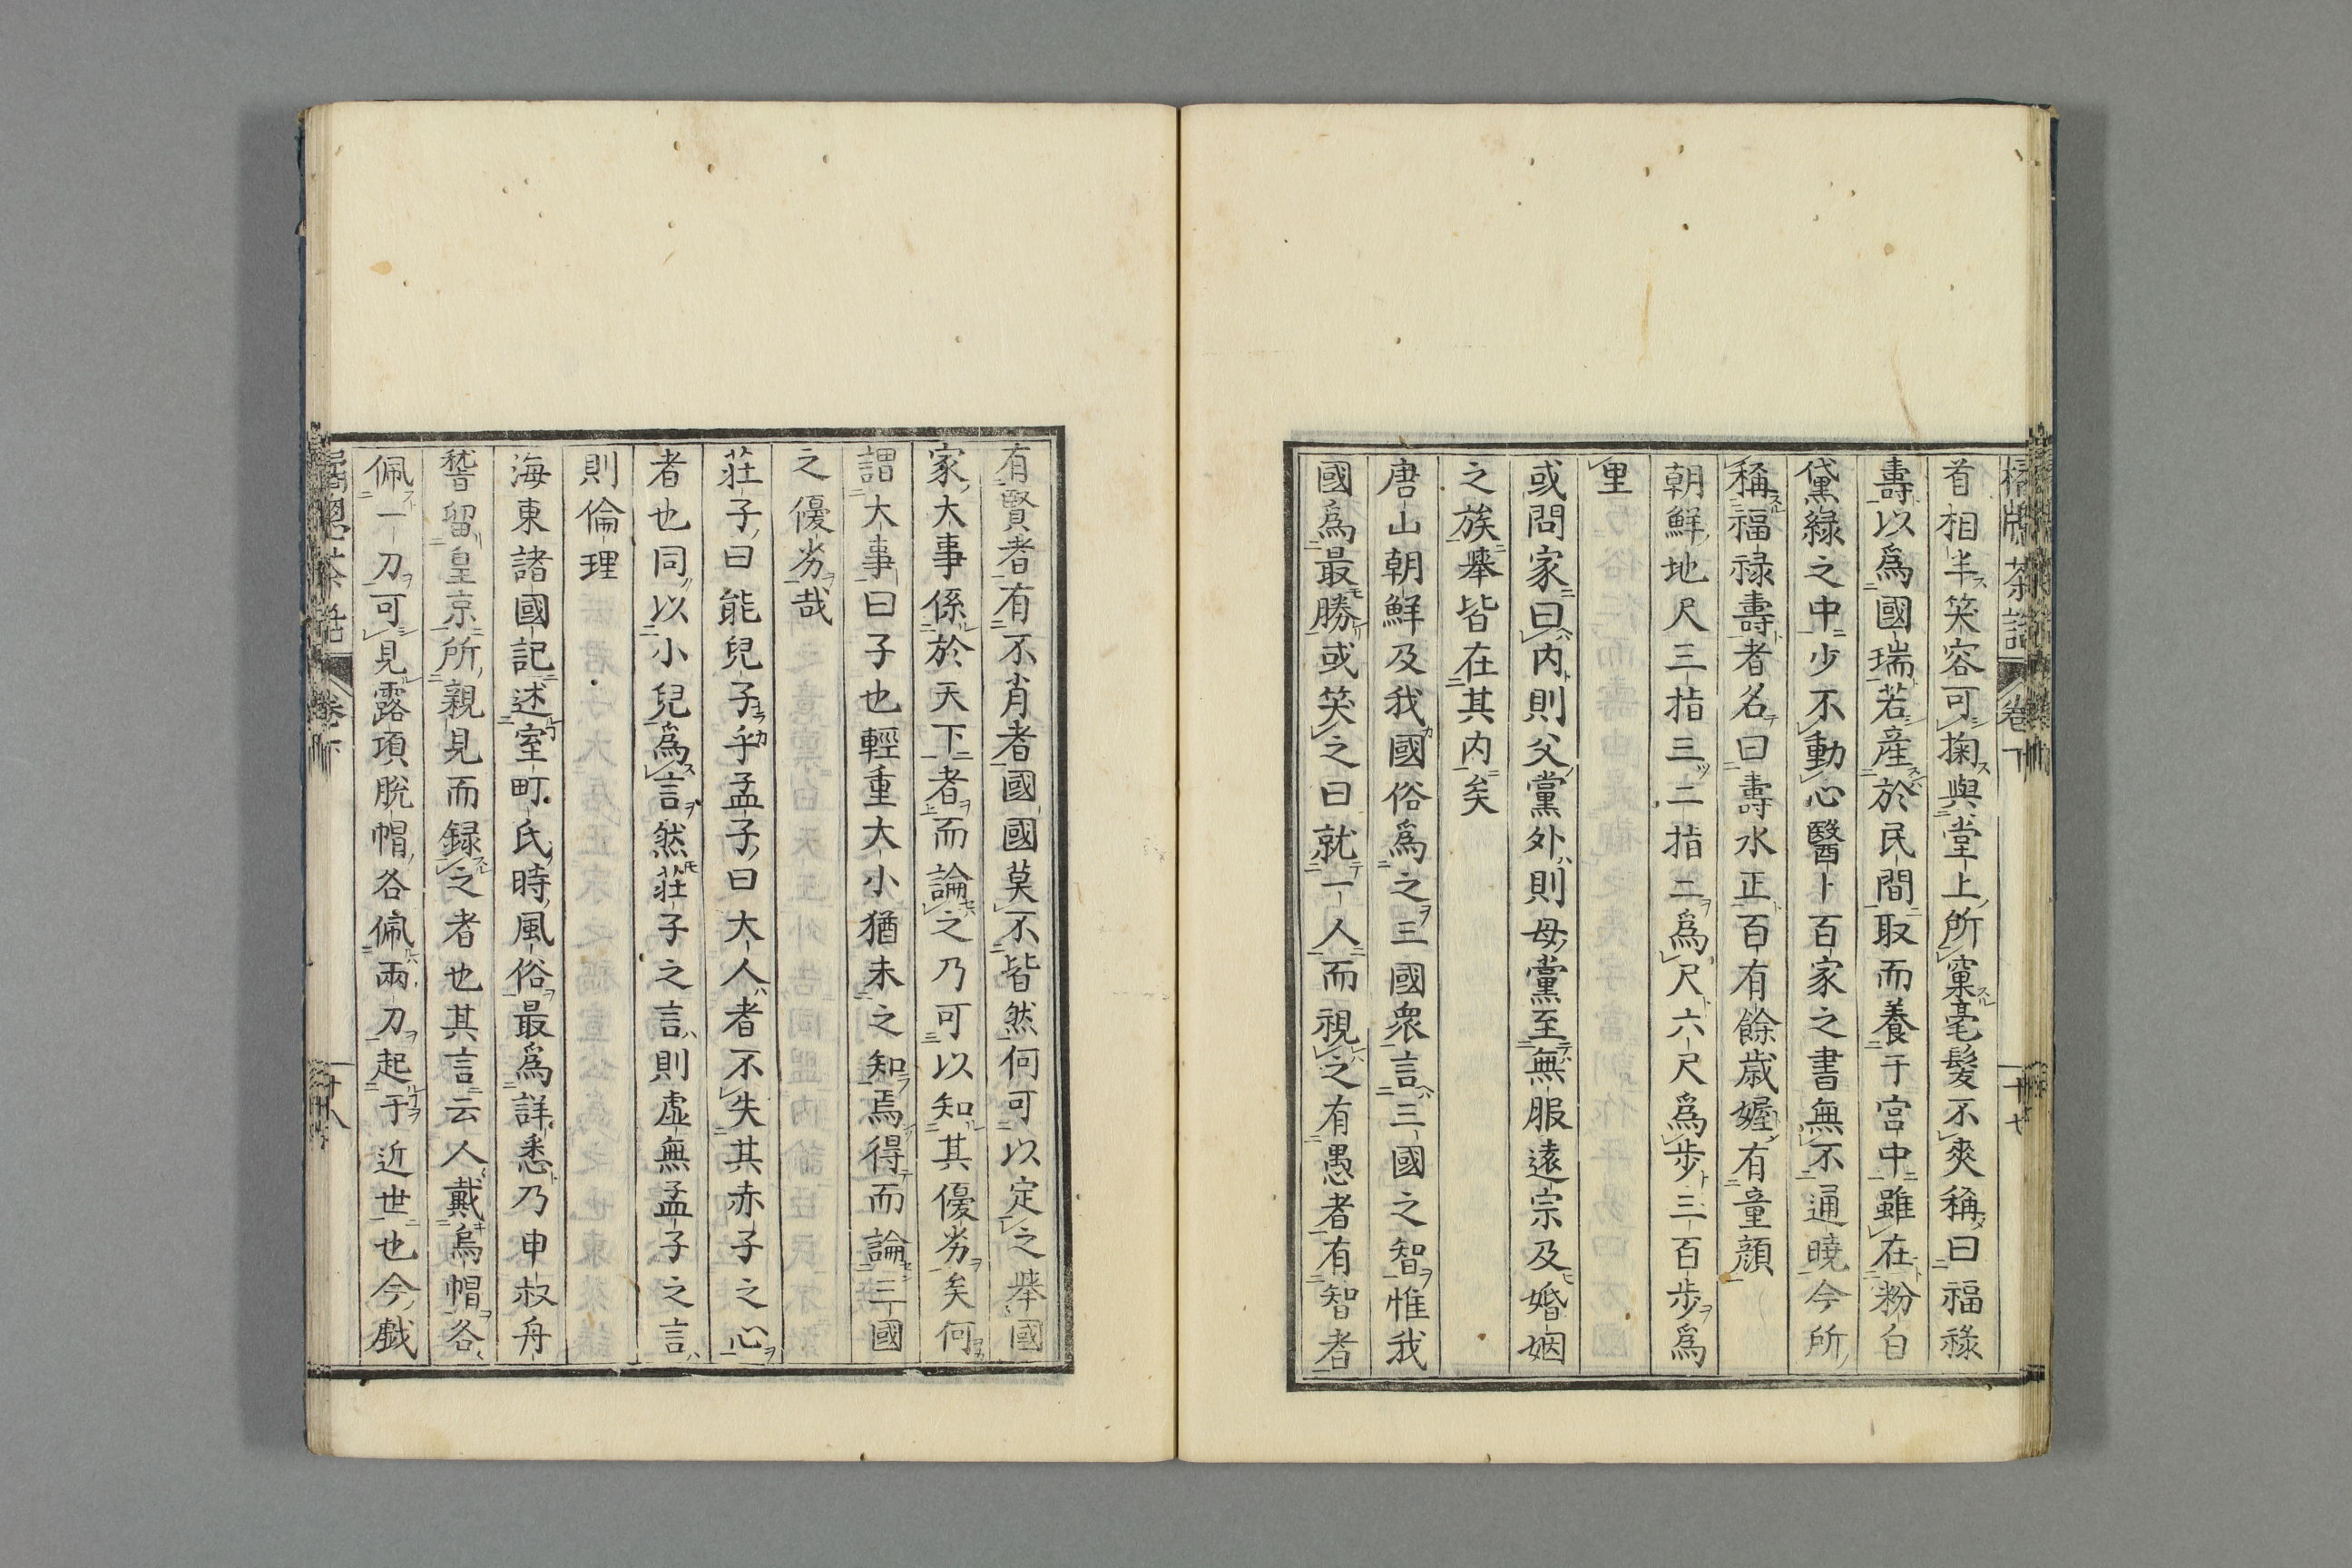 首相半笑容可掬與堂上所窠毫髮不爽稱曰福祿
壽以爲國瑞若產於民間取而養于宮中雖在粉白
黛綠之中少不動心醫卜百家之書無不通曉今所
稱福祿壽者名曰壽水正百有餘歲媉有童顏
朝鮮地尺三指三二指二爲尺六尺爲步三百步爲
里
或問家曰內則父黨外則母黨至無服遠宗及婚姻
之族舉皆在其內矣
唐山朝鮮及我國俗爲之三國衆言三國之智惟我
國爲最勝或笑之曰就一人而視之有愚者有智者
有賢者有不肖者國國莫不皆然何可以定之舉國
家大事係於天下者而論之乃可以知其優劣矣何
謂大事曰子也輕重大小猶未之知焉得而論三國
之優劣哉
莊子曰能兒子乎孟子曰大人者不失其赤子之心
者也同以小兒爲言然莊子之言則虛無孟子之言
則倫理
海東諸國記述室町氏時風俗最爲詳悉乃申叔舟
嵆留皇京所親見而錄之者也其言云人戴烏帽各
佩一刀可見露項脫帽各佩兩刀起于近世也今戯
卷下
十八
茶話
卷下
十七